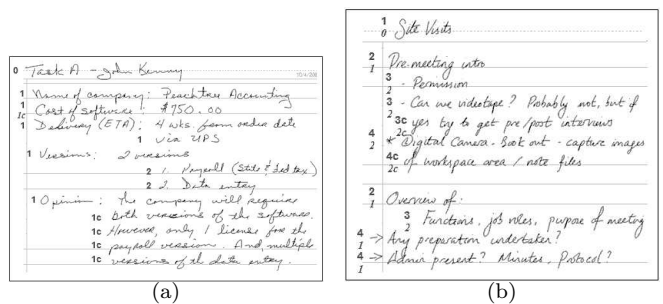 0 Task A - John Kenny
1 Name of company: Peachtree Accounting
1 Cost of software: $750.00
1c
1 Delivery (ETA): 4 wks. from order date
1 via UPS
1 Versions: 2 versions
2 1. Payroll (State & Fed tax.)
2 2. Data entry
1 Opinion: The company will require
1c both versions of the software.
1c However, only 1 license for the
1c payroll version. And, multiple
1c versions of the data entry.
(a)
1 Site Visits
0
2 Pre-meeting intro
1
3 - Permission
2
3 - Can we videotape? Probably not, but if
2
3c yes try to get pre/post interviews
2c
4 * Digital Camera - Book out - capture images
2
4c of workspace area / note files
2c
2 Overview of:
1
3 Functions, job roles, purpose of meeting
2
4 → Any preparation undertaken?
1
4 → Admin present? Minutes, Protocol?
1
(b)